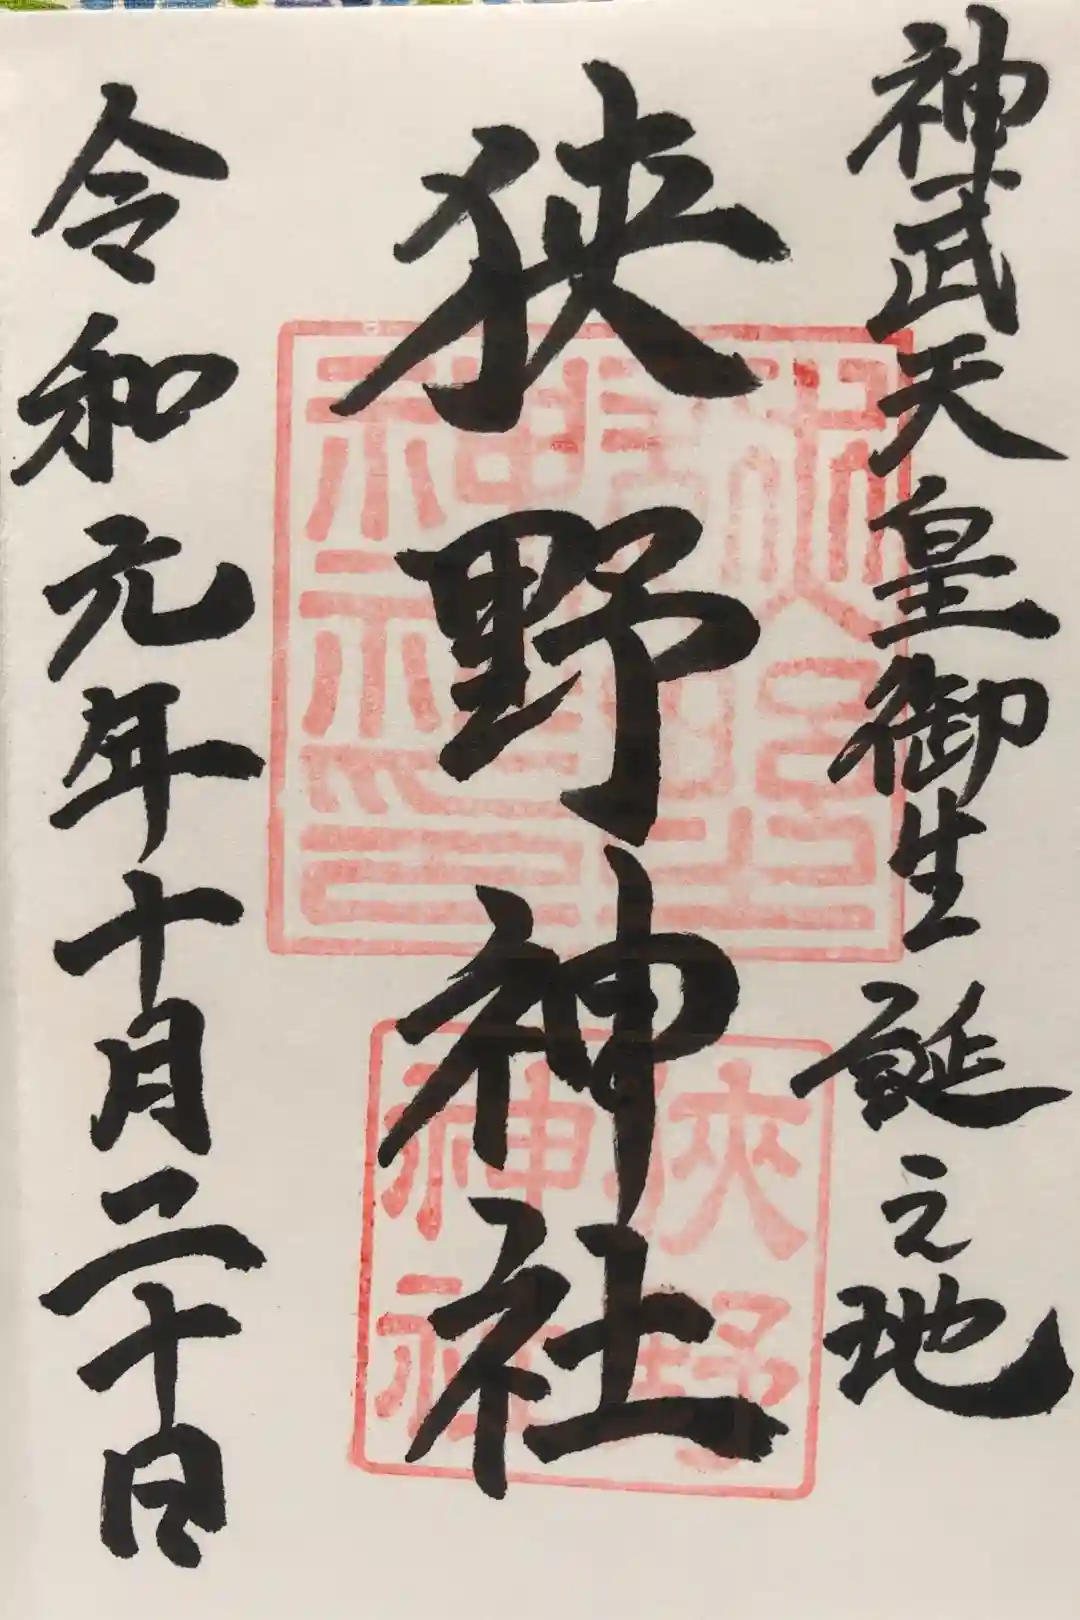 神武天皇御生誕之地
狭野神社
令和元年十月二十日
狹野
神社